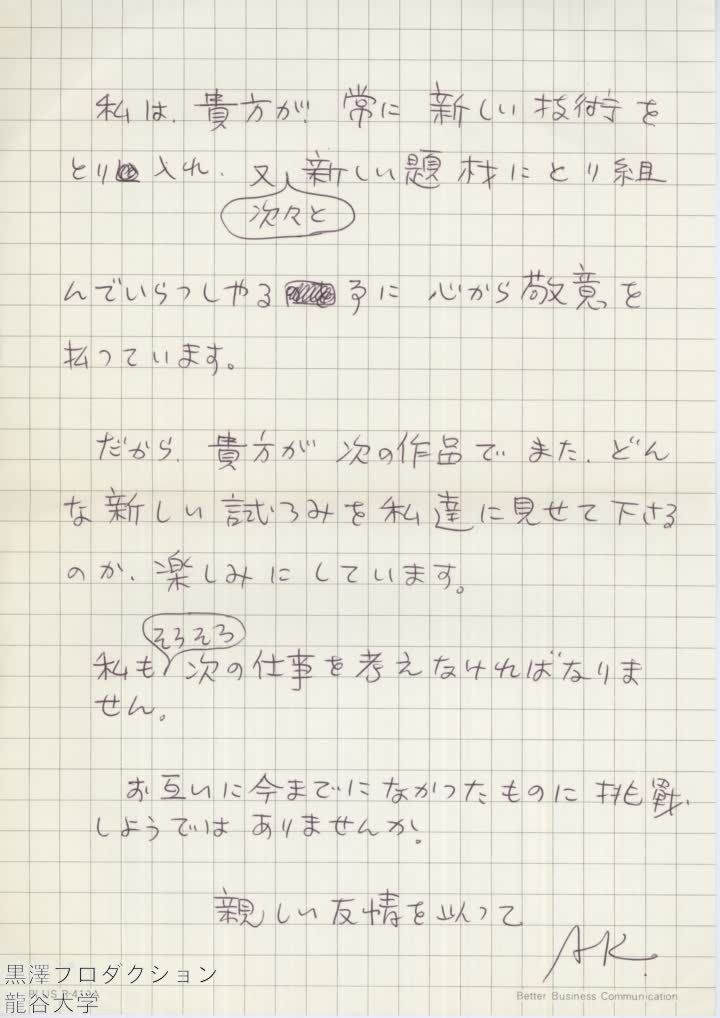 私は、貴方が、常に新しい技術を
とり入れ、又、次々と新しい題材にとり組
んでいらつしやるに心から敬意を
払つています。
だから、貴方が次の作品でまた、どん
な新しい試ろみを私達に見せて下さる
のか、楽しみにしています。
私もそろそろ次の仕事を考えなければなりま
せん。
お互いに今までになかつたものに挑戰
しようではありませんか。
親しい友情を以つて
AK.
黒澤プロダクション
龍谷大学
Better Business Communication